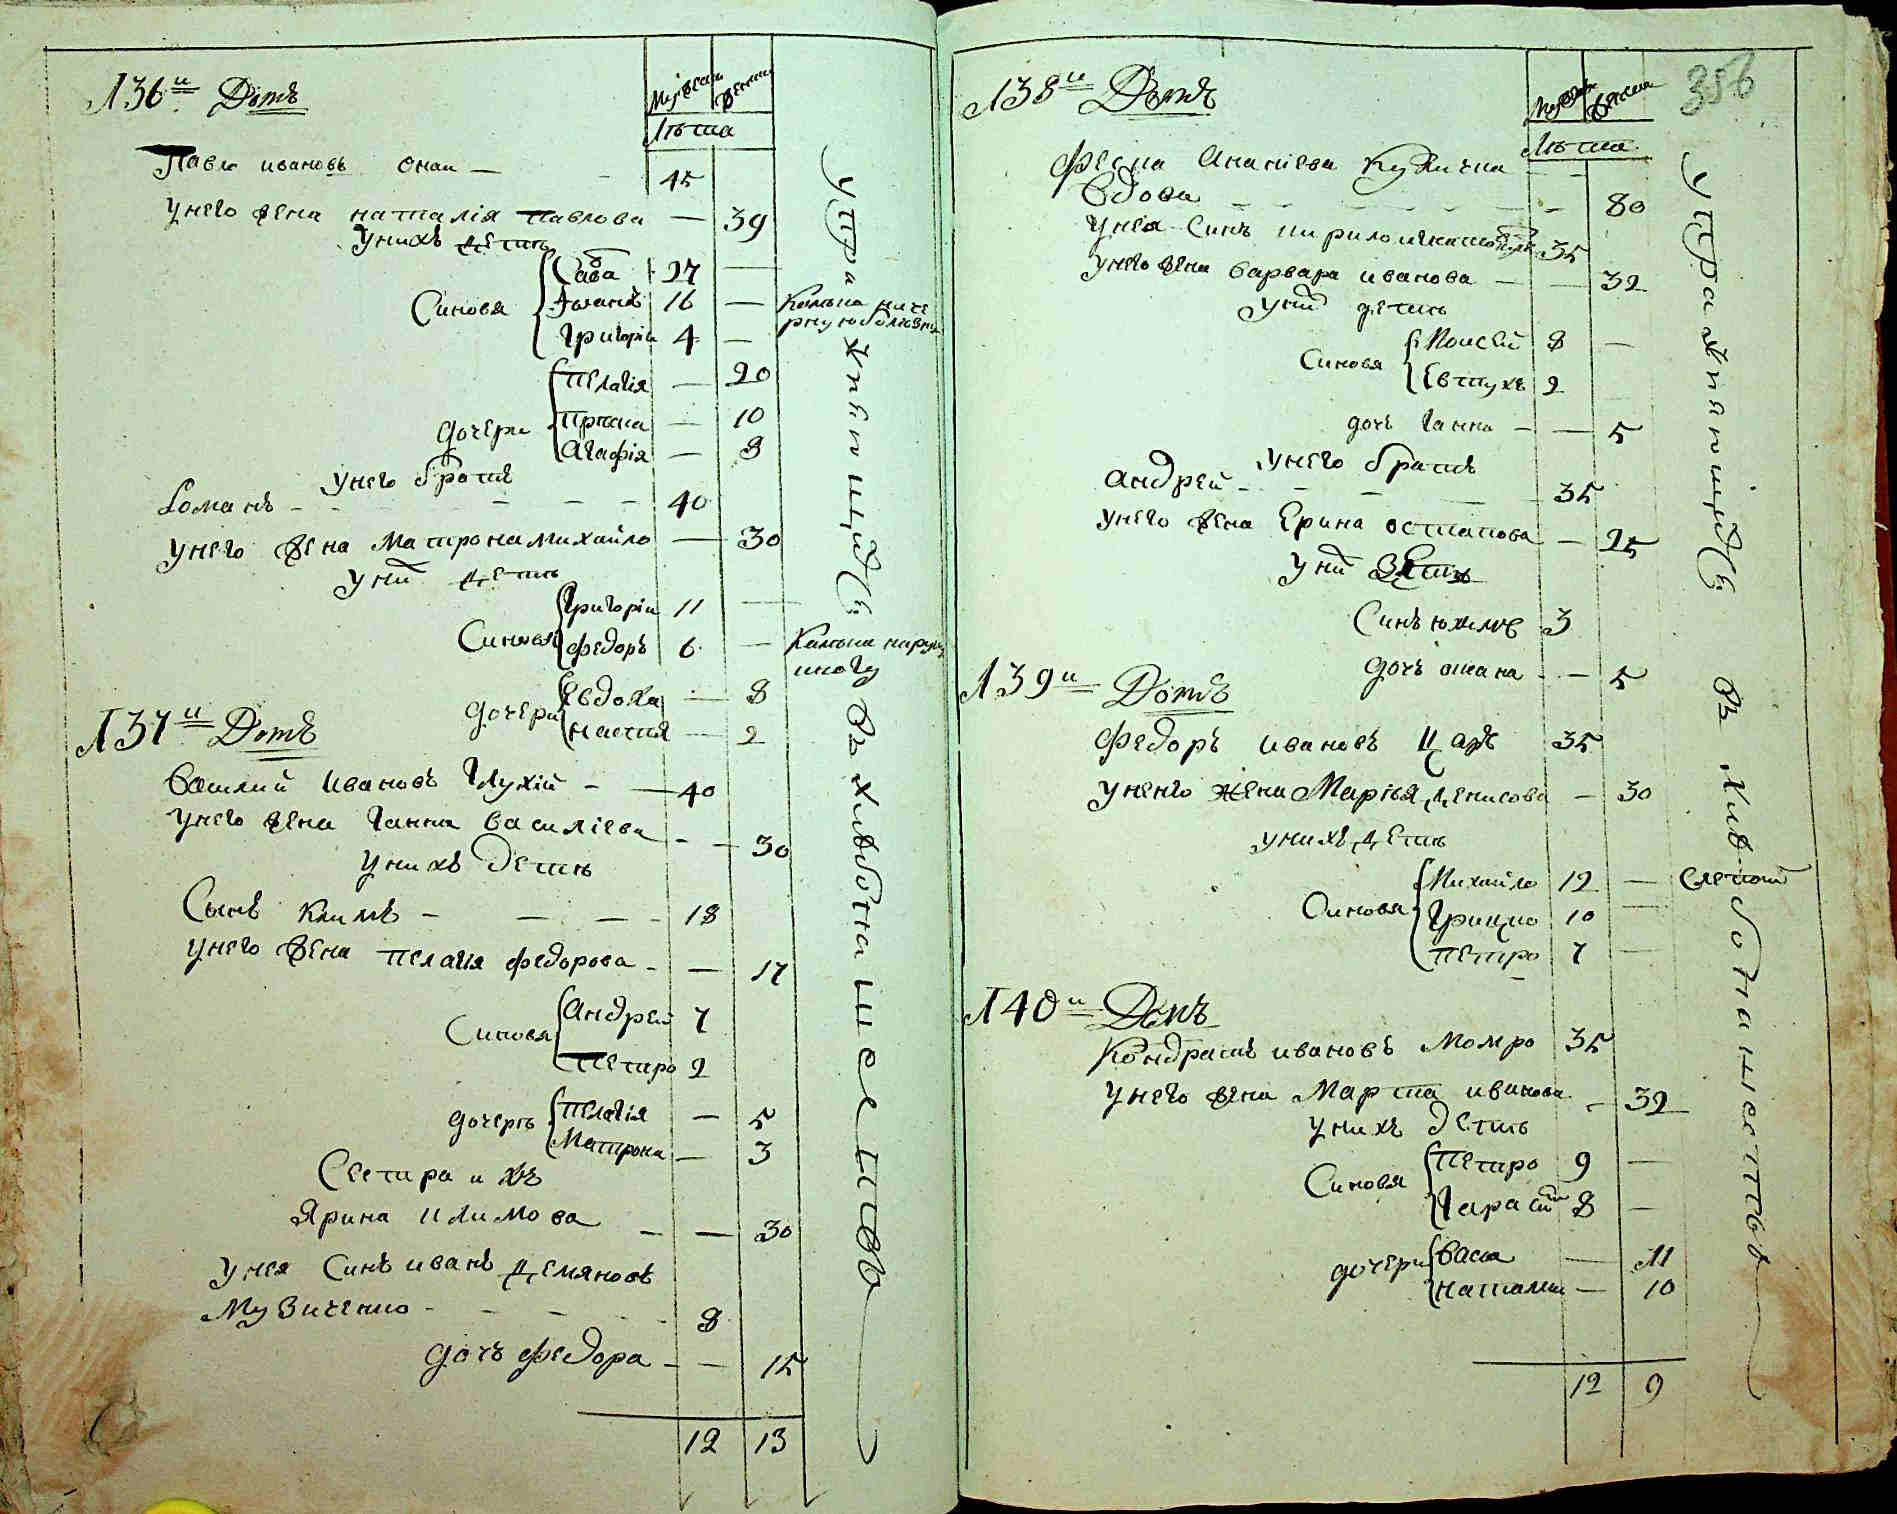 136й Домъ
Мужеска
Женска
Лѣта
Павло ивановъ Онаи — — 45
Унего жена наталія Павлова — 39
Унихъ дети
Синовя
Сава 27 —
16 —
Григорій 4 —
дочери
Пелагія — 20
— 10
Агафія — 8
Унего братъ
Романъ - - - - 40
Унего жена Матрона Михайло — 30
Уних дети
Синовя
Григорій 11 —
Федоръ 6 —
дочери
Евдоха — 8
Настя — 2
137й Домъ
Василий Ивановъ Глухій - — 40
Унего жена Ганна Василіева - — 30
Унихъ дети
Сынъ Климъ - — — - 18
Унего жена Пелагія Федорова - — 17
Синовя
Андрей 7
Петро 2
дочерѣ
Пелагія — 5
Матрона — 3
Сестра ихъ
Ярина Климова — — 30
Унея Синъ иванъ Демяновъ
Музиченко - - - - 8
дочъ Федора - — 15
12 13
упражняющиися въ хлѣбопашествѣ
356
138й Домъ
Мужеска
Женска
Лѣта
Ананіева
вдова - - - - 80
Унея Синъ 35
Унего жена варвара иванова - — 32
Уних дети
Синовя
Моисей 8 —
Евтухъ 2
дочъ Ганна - — 5
Унего братъ
Андрей - - - — 35
Унего жена Ерина остапова — 25
Уних дети
Синъ 3
дочъ - — 5
139й Домъ
Федоръ ивановъ 35
Уненго жена Марія Денисова — 30
унихъ дети
Синовя
Михайло 12 — слепой
Грицко 10 —
Петро 7 —
140й Домъ
Кондратъ ивановъ Момро 35
Унего жена Марта иванова - 32
Унихъ дети
Синовя
Петро 9 —
Гарасим 8 —
дочери
Васа — 11
Наталия — 10
12 9
упражняющиися въ хлѣбопашествѣ